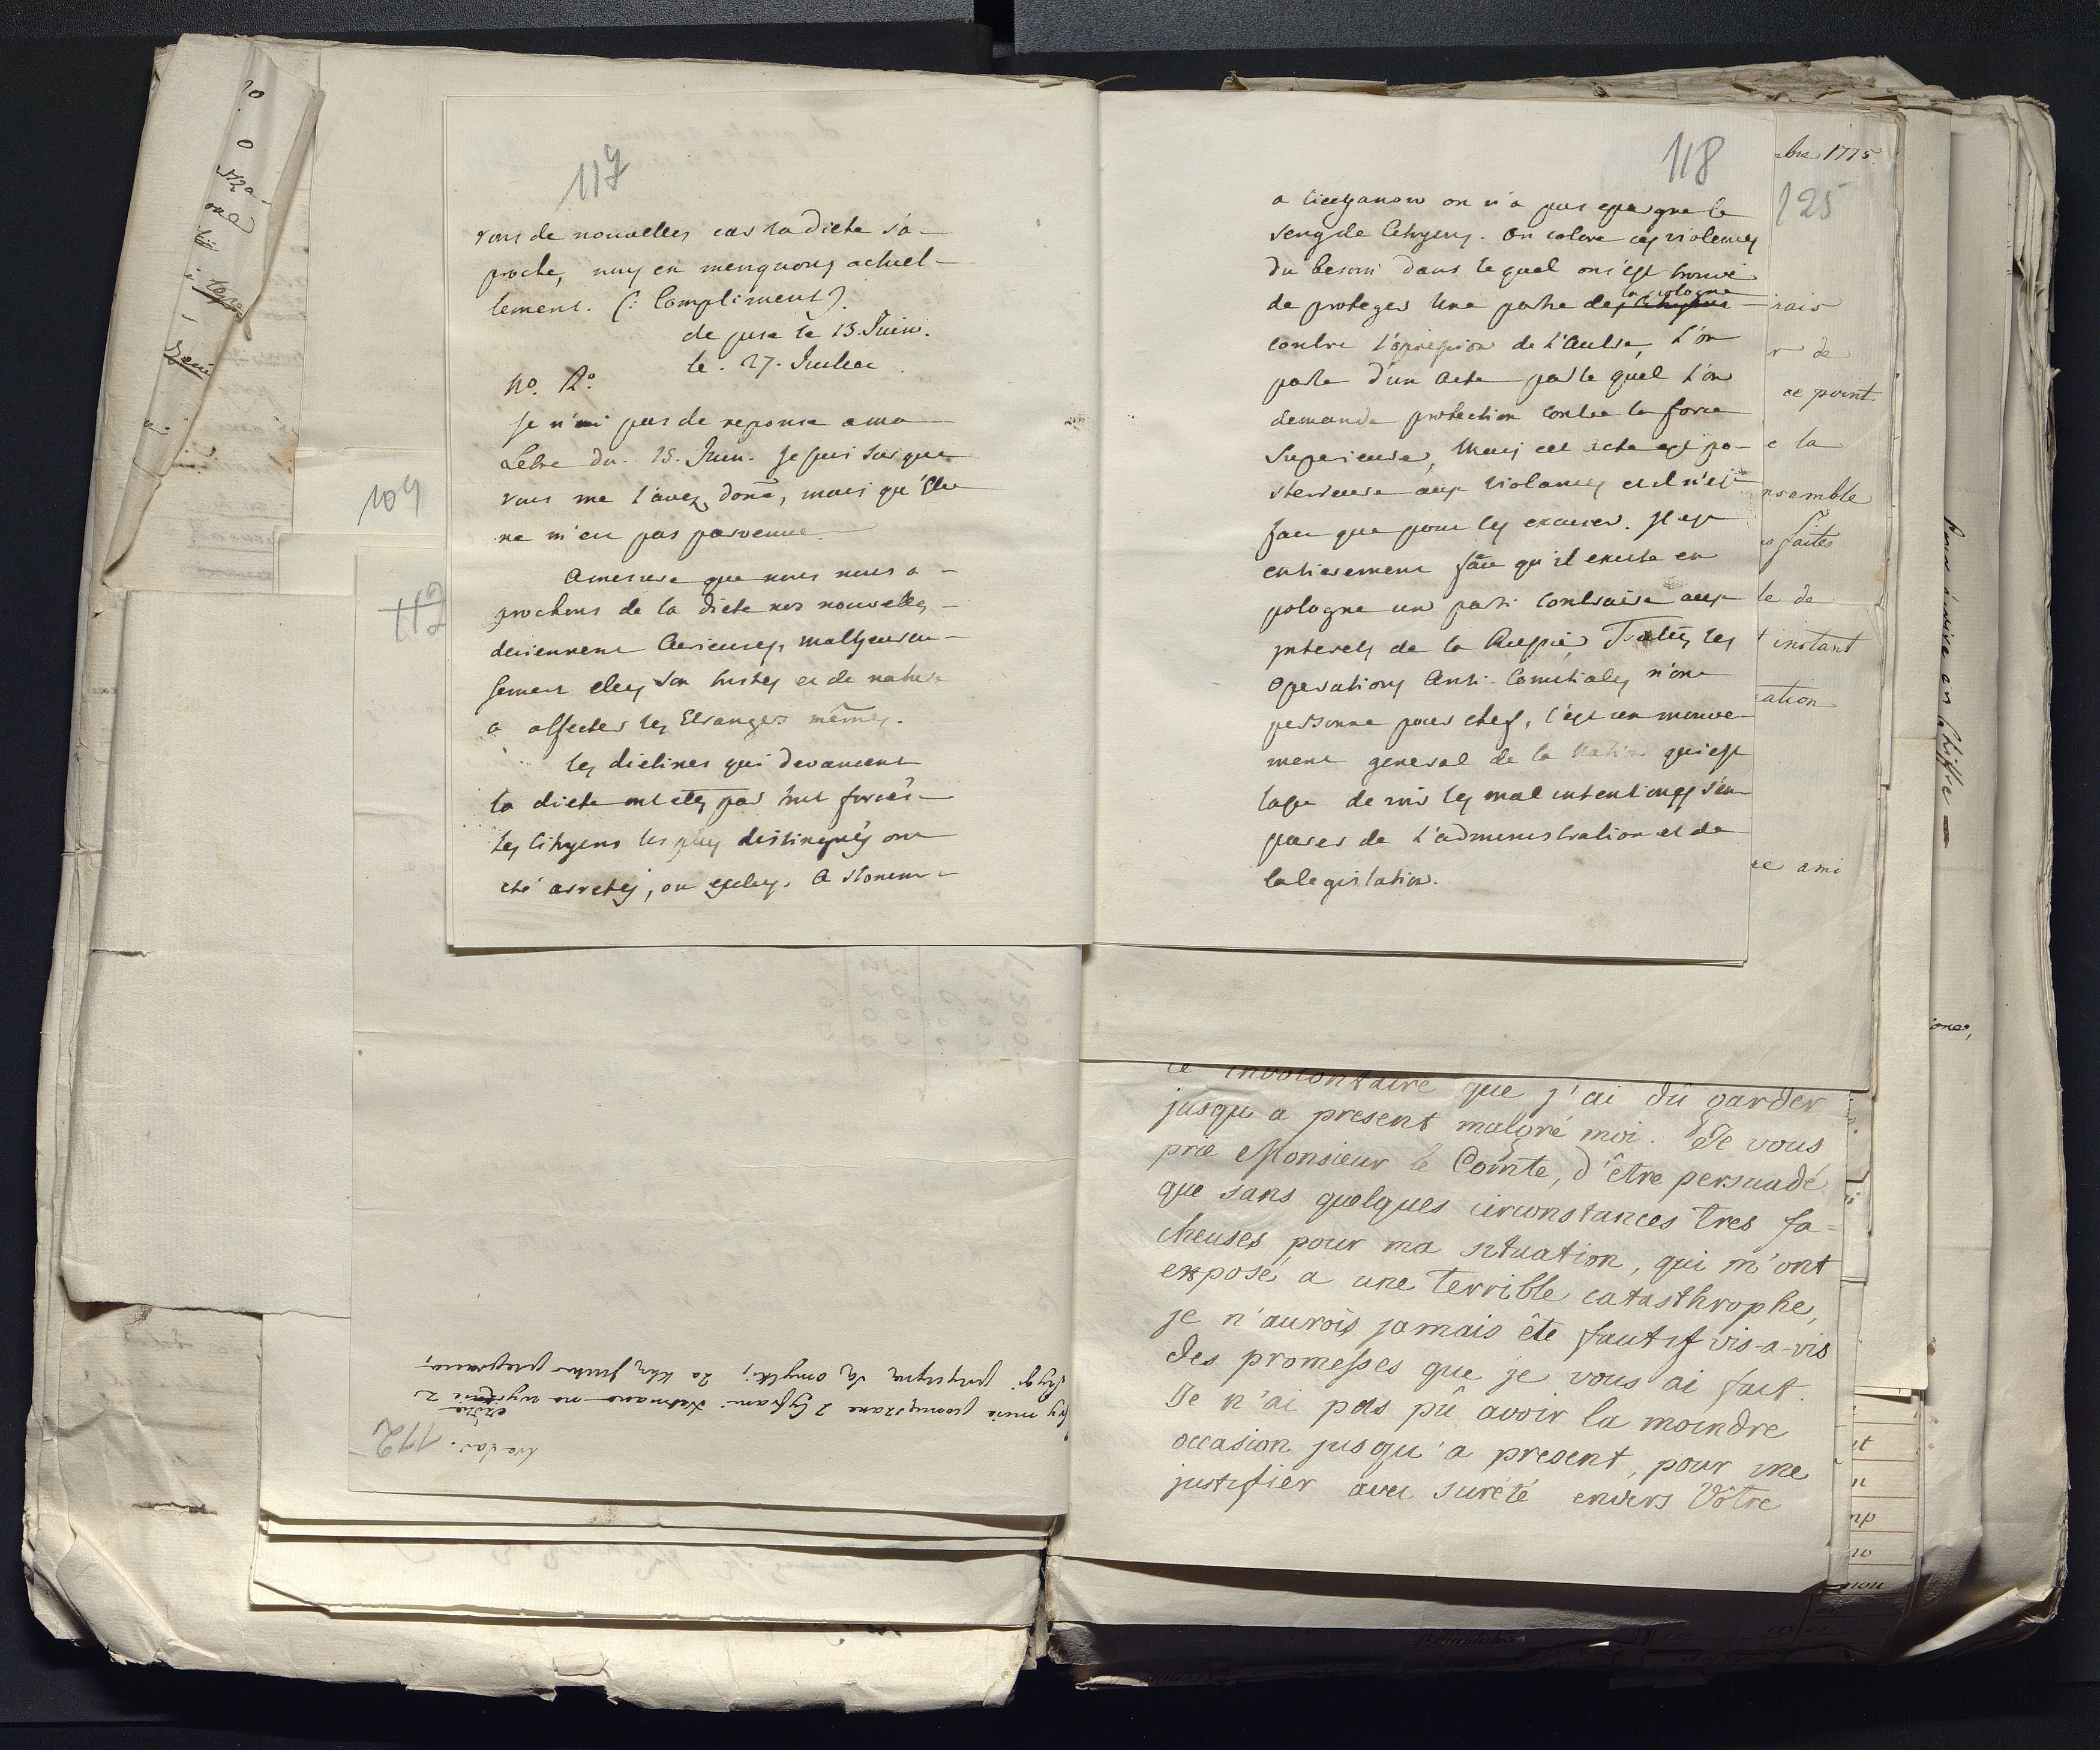 117
vous de nouvelles cas la diete s'a-
proche, nous en menquons actuel-
lement. (: Compliment).
de pera le 13. Juin.
le. 27. Juillet
No. R.o
Je n'ai pas de reponse a ma
Letre du. 15. Juin. Je suis sur que
vous me l'avez doné, mais qu'Elle
ne m'est pas parvenue.
Amesure que nous nous a-
prochons de la diete nos nouvelles
deviennent Curieuses, malheureu-
sement elles son tristes et de nature
a affecter les Etrangers mêmes.
les dietines qui devancent
la diete ont etes par tout forcés
les Citoyens les plus distingués ont
eté arretés, ou exiles. A Slonim
118
a Ciechanow on n'a pas epargné le
seng de Citoyens. On colore ces violences
du besoin dans le quel on s'est trouvé
de proteger Une partie des Citoyens
la pologne
contre l'opression de l'Autre, l'on
parle d'un Acte par le quel l'on
demande protection contre la force
Superieure, Mais cet acte est po-
sterieure aux violances et il n'est
fait que pour les excuser. Il est
entierement faux qu'il existe en
pologne un parti contraire aux
jnterets de la Russie, Toutes les
Operations Anti-Comitiales n'ont
personne pour chef, c'est un mouve-
ment general de la Nation qui est
lasse de voir les mal intentionés s'em-
parer de l'administration et de
la legislation.
bre 1775.
125
irais
r de
ce point
e la
nsemble
s faites
le de
t instant
ation
re ami
109
112
ce involontaire que j'ai dû garder
jusqu a present malgré moi. Je vous
prie Monsieur le Comte, d'être persuadé
que sans quelques circonstances tres fa=
cheuses pour ma situation, qui m'ont
exposé a une terrible catasthrophe,
je n'aurois jamais ête fautif vis-a-vis
des promesses que je vous ai fait.
Je n'ai pas pû avoir la moindre
occasion jusqu'a present, pour me
justifier avec sureté envers Vôtre
112